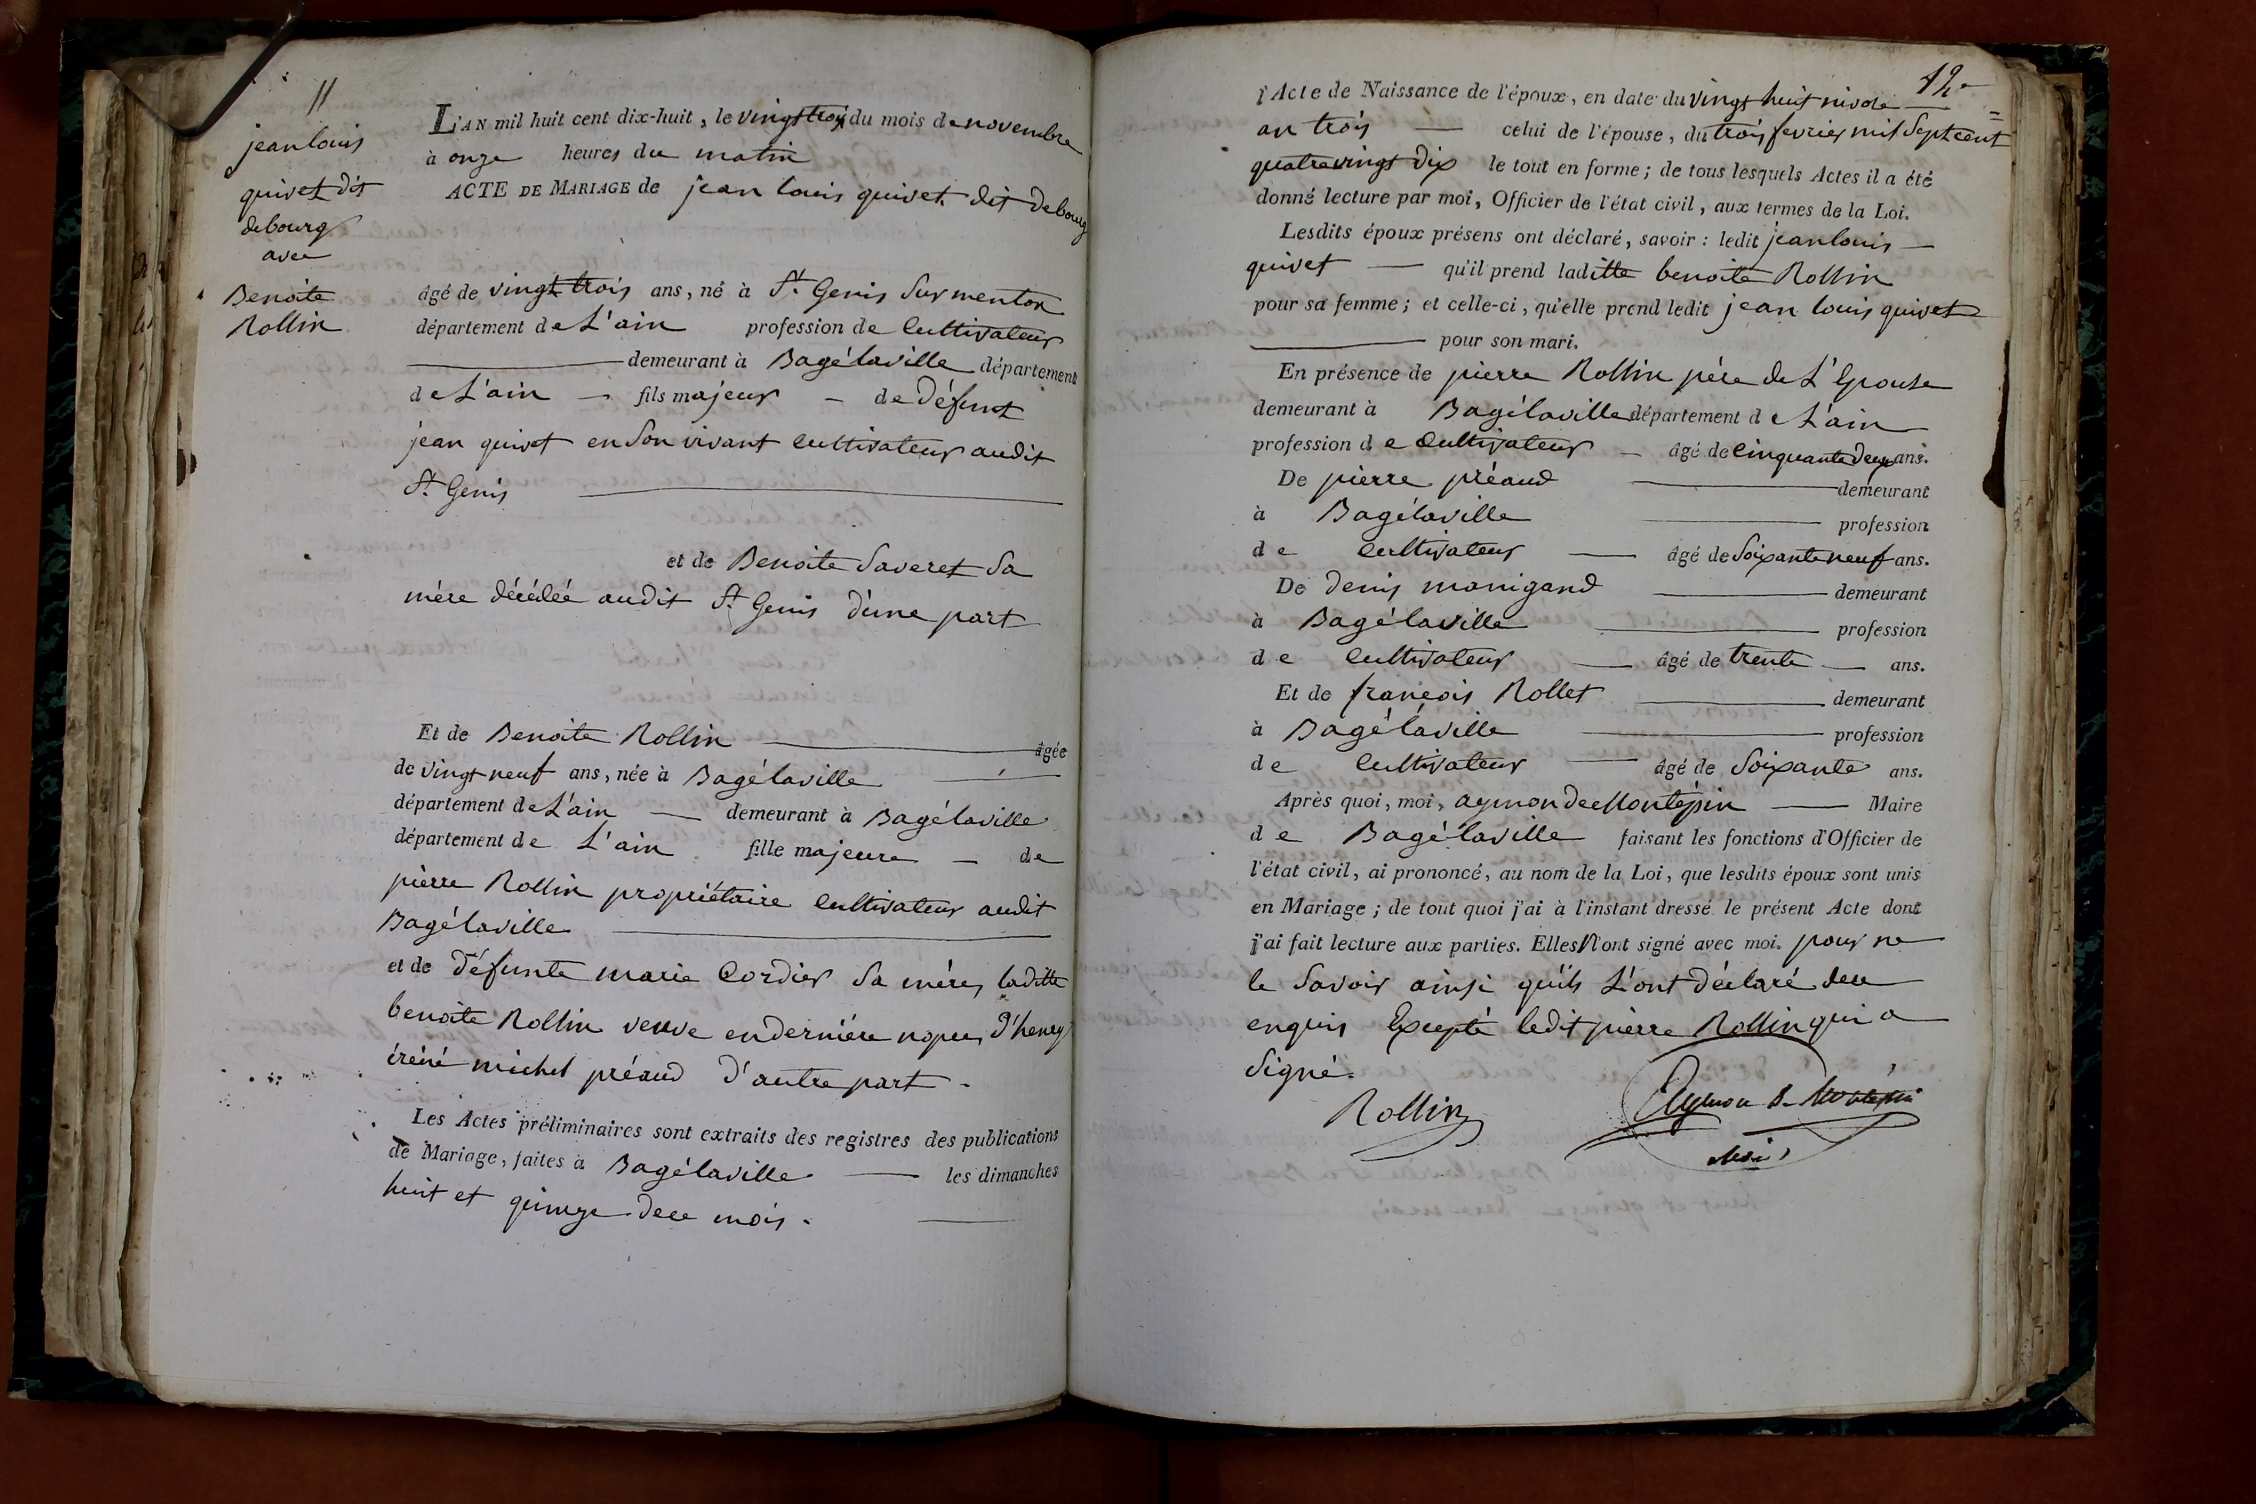 11
jean louis
quivet dit
debourg
avec
Benoite
Rollin
L'AN mil huit cent dix-huit, le vingt trois du mois de novembre
à onze heures du matin
ACTE DE MARIAGE de jean louis quivet dit debourg
âgé de vingt trois ans, né à St Genis Sur menton
département de L'ain profession de Cultivateur
demeurant à Bagélaville département
de L'ain fils majeur de défunt
jean quivet en Son vivant cultivateur audit
St Genis
et de Benoite Saveret Sa
mére décédée audit St Genis d'une part
Et de Benoite Rollin âgée
de vingt neuf ans, née à Bagélaville
département de L'ain demeurant à Bagélaville
département de L'ain fille majeure de
pierre Rollin propriétaire cultivateur audit
Bagélaville
et de défunte marie Cordier Sa mére, laditte
benoite Rollin veuve en derniére nopces d'henry
iréné michel préaud d'autre part.
Les Actes préliminaires sont extraits des registres des publications
de Mariage, faites à Bagélaville les dimanches
huit et quinze de ce mois.
12
l'Acte de Naissance de l'époux, en date du vingt huit nivose
an trois celui de l'épouse, du trois fevrier mil Sept cent
quatrevingt dix le tout en forme; de tous lesquels Actes il a été
donné lecture par moi, Officier de l'état civil, aux termes de la Loi.
Lesdits époux présens ont déclaré, savoir : ledit jean louis
quivet qu'il prend laditte benoite Rollin
pour sa femme; et celle-ci, qu'elle prend ledit jean louis quivet
pour son mari.
En présence de pierre Rollin pére de L'Epouse
demeurant à Bagélaville département de L'ain
profession de Cultivateur âgé de cinquante deux ans.
De pierre préaud demeurant
à Bagélaville profession
de cultivateur âgé de Soixante neuf ans.
De denis manigand demeurant
à Bagélaville profession
de cultivateur âgé de trente ans.
Et de francois Rollet demeurant
à Bagélaville profession
de Cultivateur âgé de Soixante ans.
Après quoi, moi, aymon de Montépin Maire
de Bagélaville faisant les fonctions d'Officier de
l'état civil, ai prononcé, au nom de la Loi, que lesdits époux sont unis
en Mariage ; de tout quoi j'ai à l'instant dressé le présent Acte dont
j'ai fait lecture aux parties. Elles N'ont signé avec moi. pour ne
le Savoir ainsi qu'ils L'ont déclaré de ce
enquis Excepté ledit pierre Rollin qui a
Signé.
Rollin
Aymon de Montépin